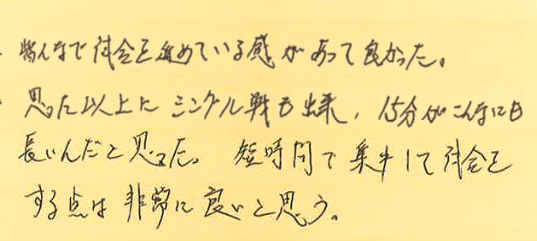 ・皆んなで試合を進めている感があって良かった。
・思った以上にシングル戦も出来、15分がこんなにも
長いんだと思った。短時間で集中して試合を
する点は非常に良いと思う。